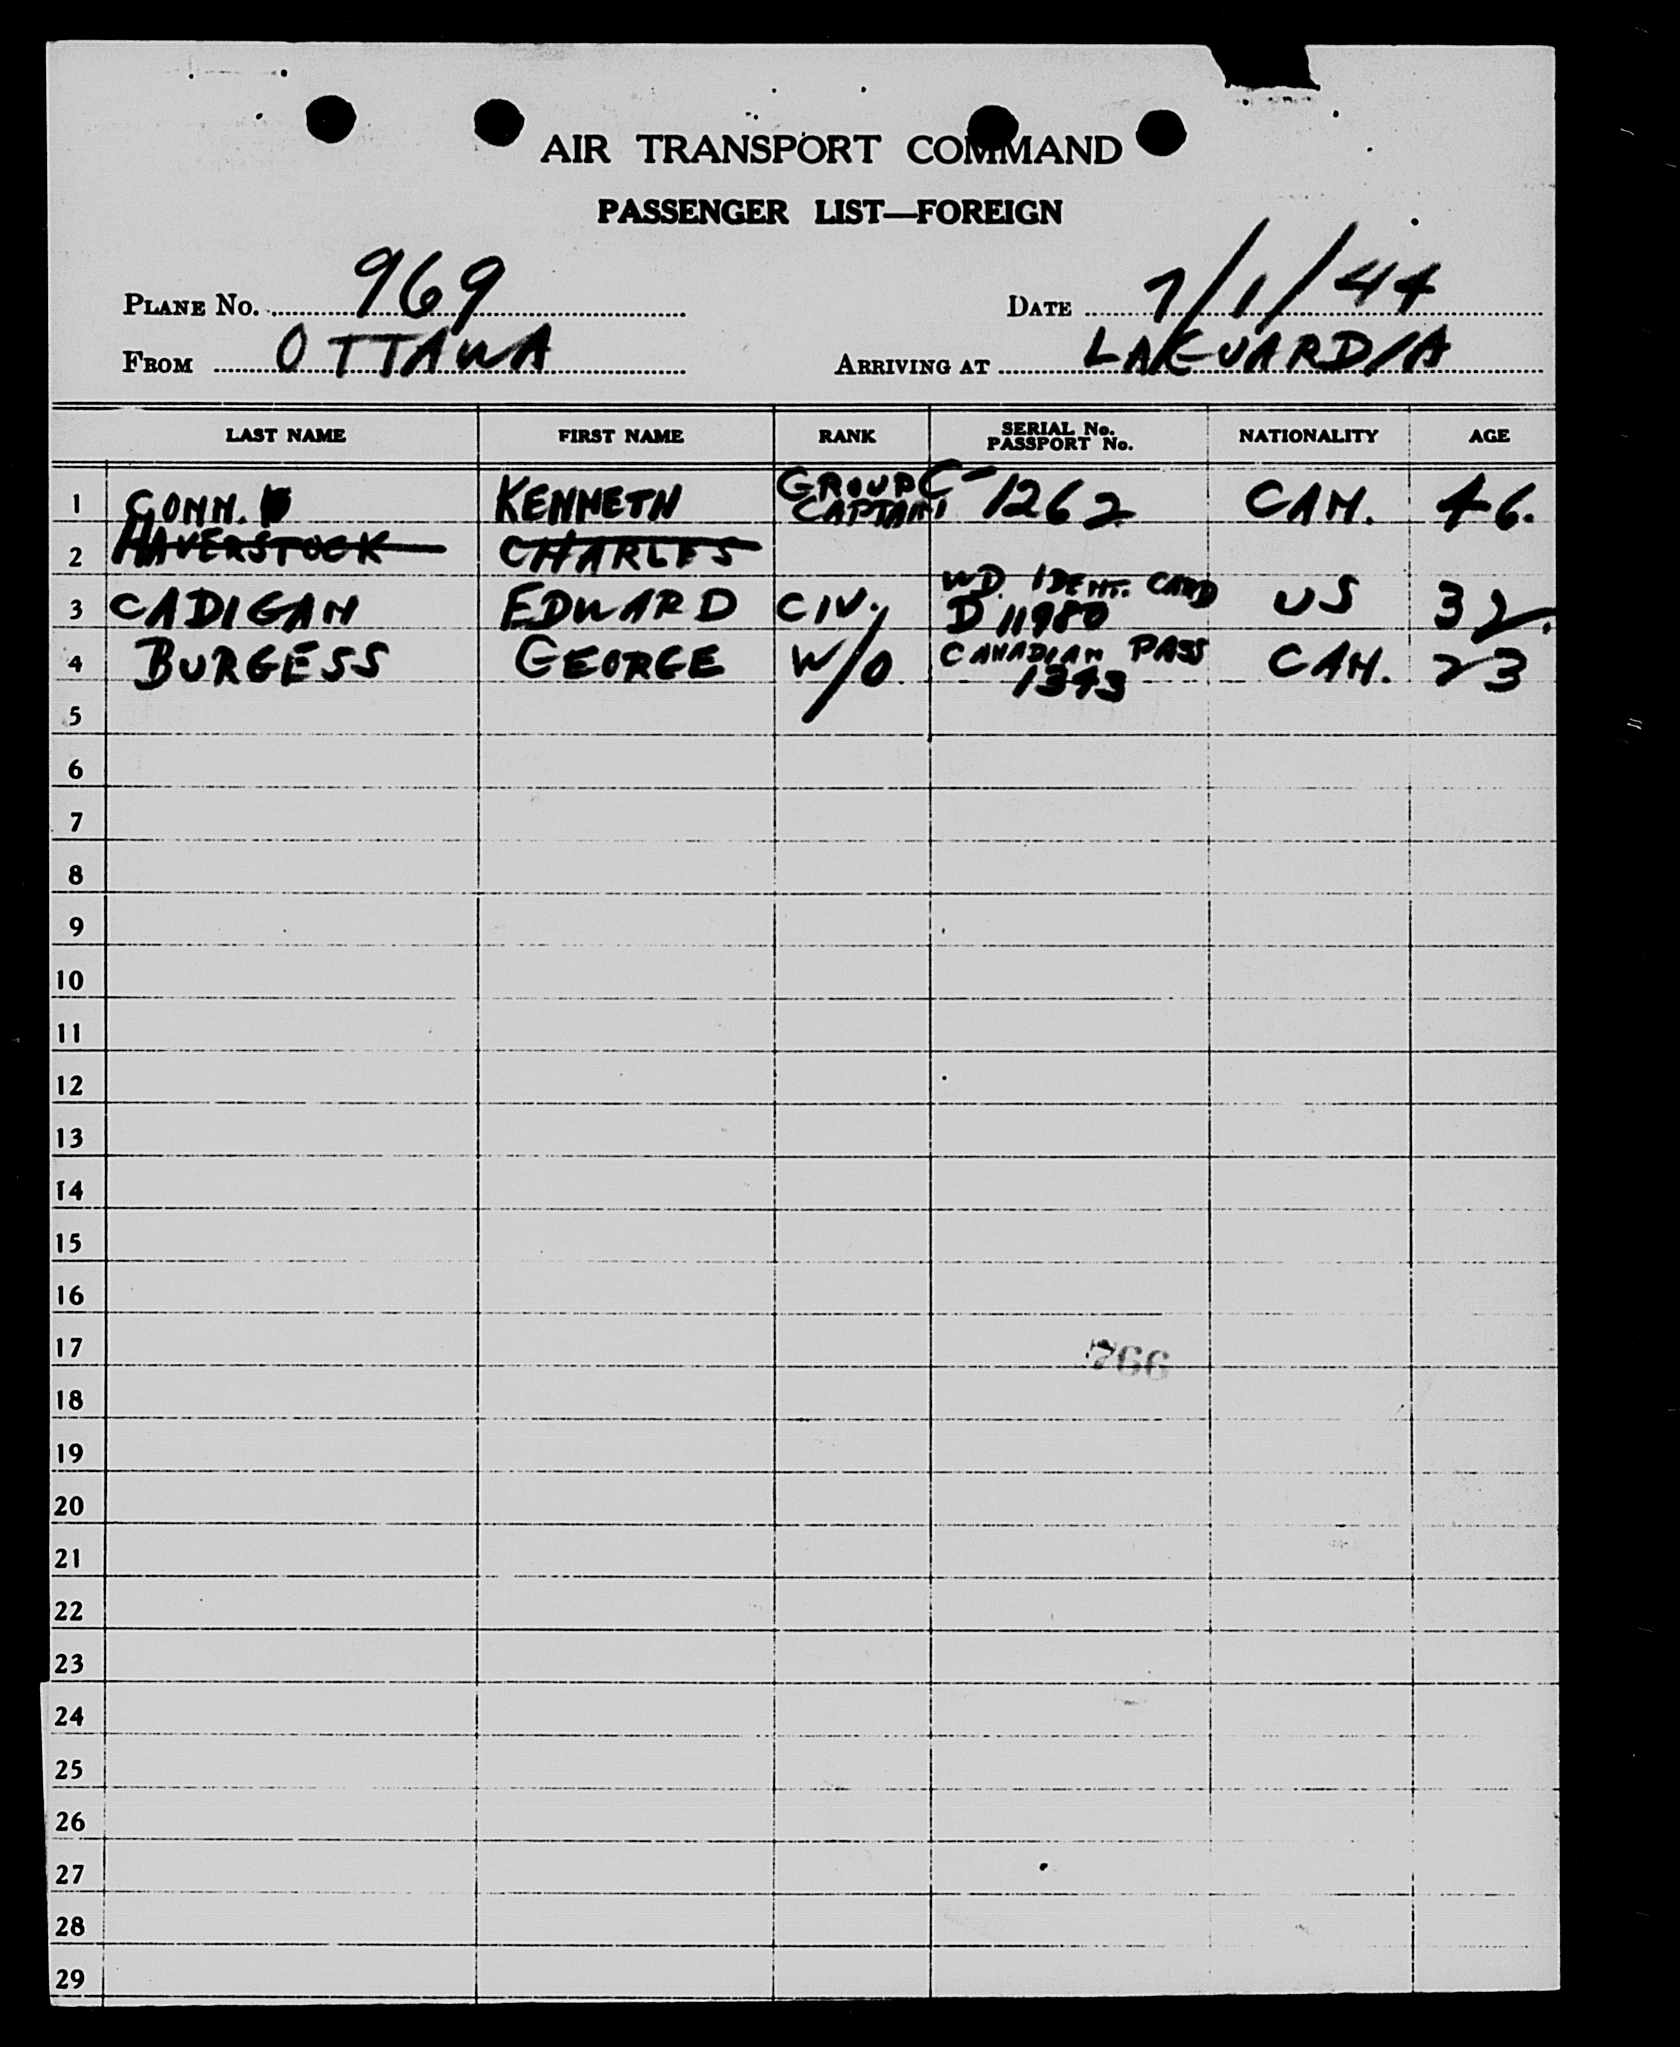 AIR TRANSPORT COMMAND
PASSENGER LIST—FOREIGN
PLANE No. 969 DATE 7/1/44
FROM OTTAWA ARRIVING AT LAGUARDIA
LAST NAME FIRST NAME RANK SERIAL No. PASSPORT No. NATIONALITY AGE
1 CONN. KENNETH GROUP CAPTAIN C-1262 CAN. 46.
2 HAVERSTOCK CHARLES
3 CADIGAN EDWARD CIV. WD. IDENT. CARD D 11980 US 32.
4 BURGESS GEORGE W/O CANADIAN PASS 1343 CAN. 23
5
6
7
8
9
10
11
12
13
14
15
16
17
766
18
19
20
21
22
23
24
25
26
27
28
29